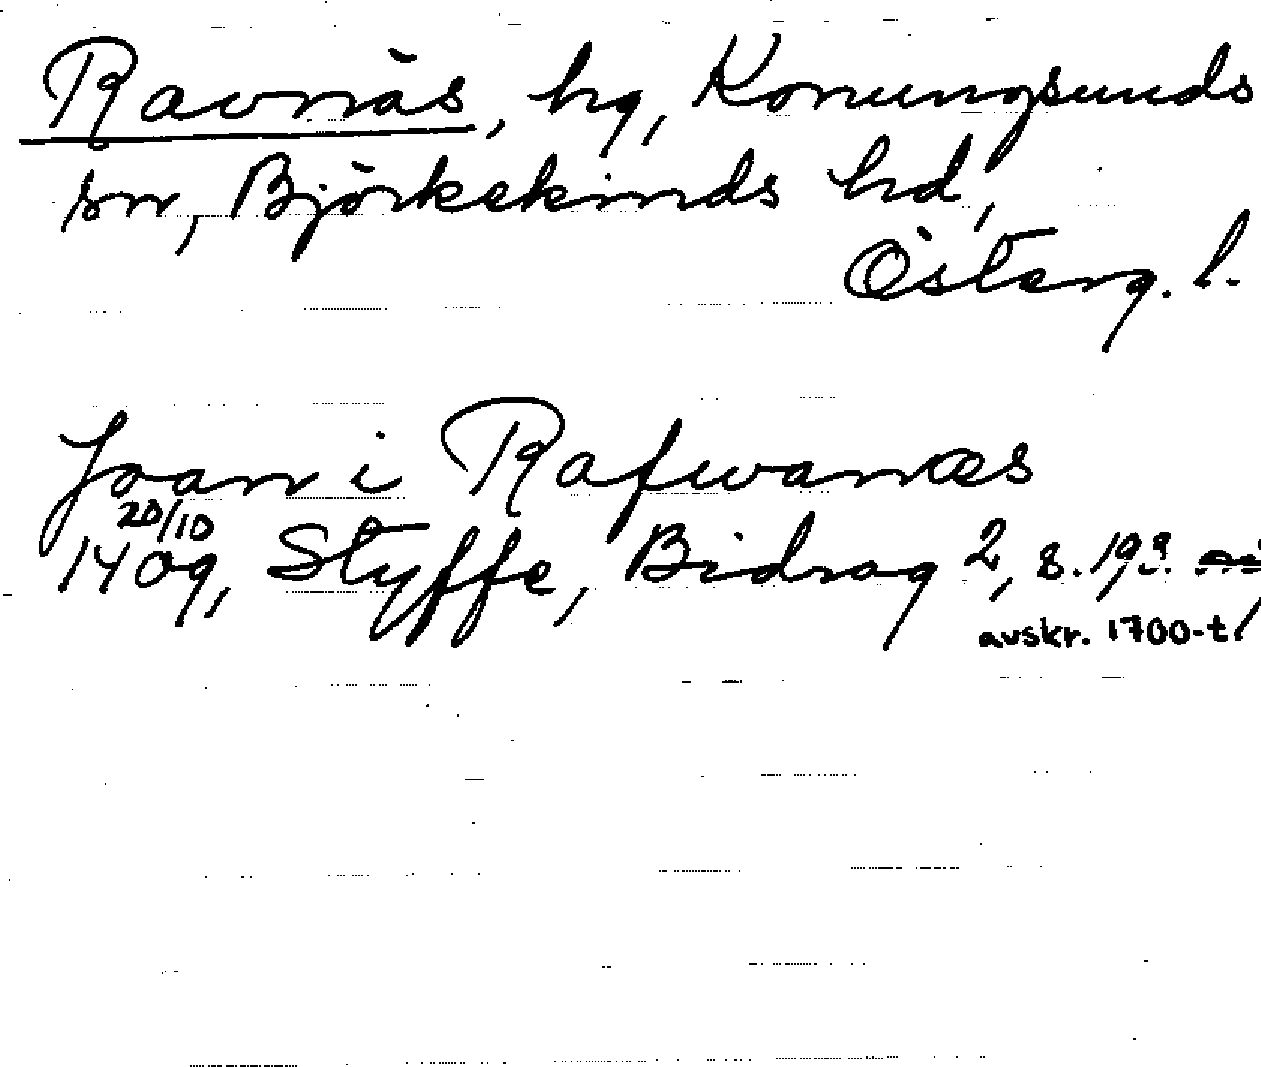 Ravnäs, hg, Konungsunds
sn, Björkekinds hd,
Österg. l.
Joan i Rafwanæs
20/10
1409, Styffe, Bidrag 2, s. 199.
avskr. 1700-t